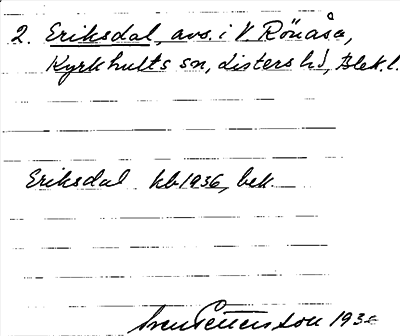 2. Eriksdal, avs. i V Rönåsa,
Kyrkhults sn, Listers hd, Blek. l.
Eriksdal kb 1936, bek.
Sven Pettersson 193